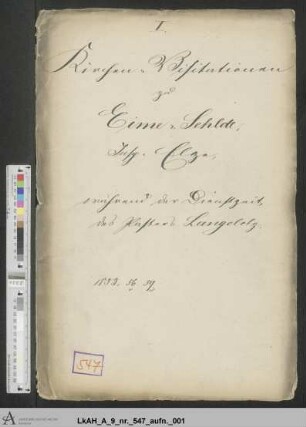 I.
Kirchen-Visitationen
zu
Eime u. Sehlde,
Insp. Elze,
während der Dienstzeit
des Pastors
1853. 56 59
547
LkAH_A_9_nr._547_aufn._001